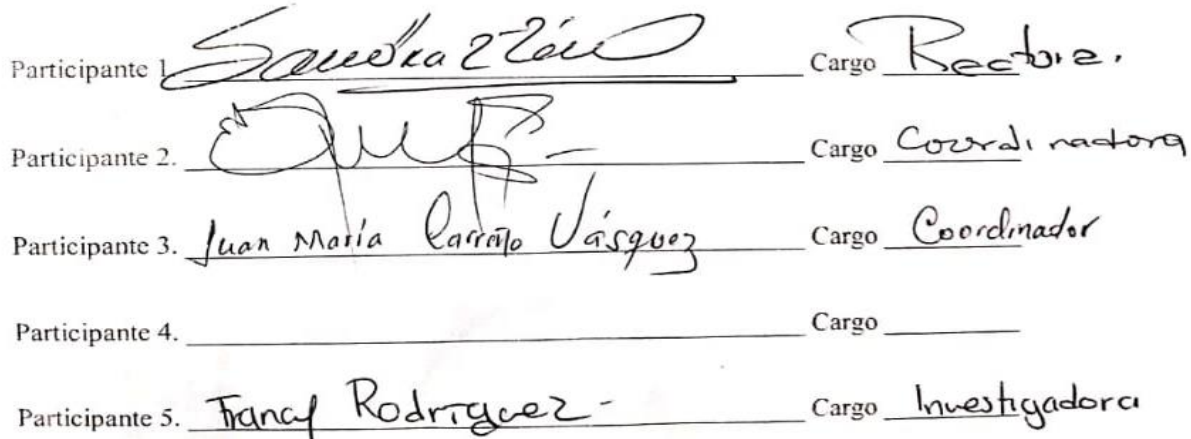 Participante 1 Sandra Cargo Rectora.
Participante 2. Cargo Coordinadora
Participante 3. Juan María Carreño Vásquez Cargo Coordinador
Participante 4. Cargo
Participante 5. Francy Rodriguez - Cargo Investigadora